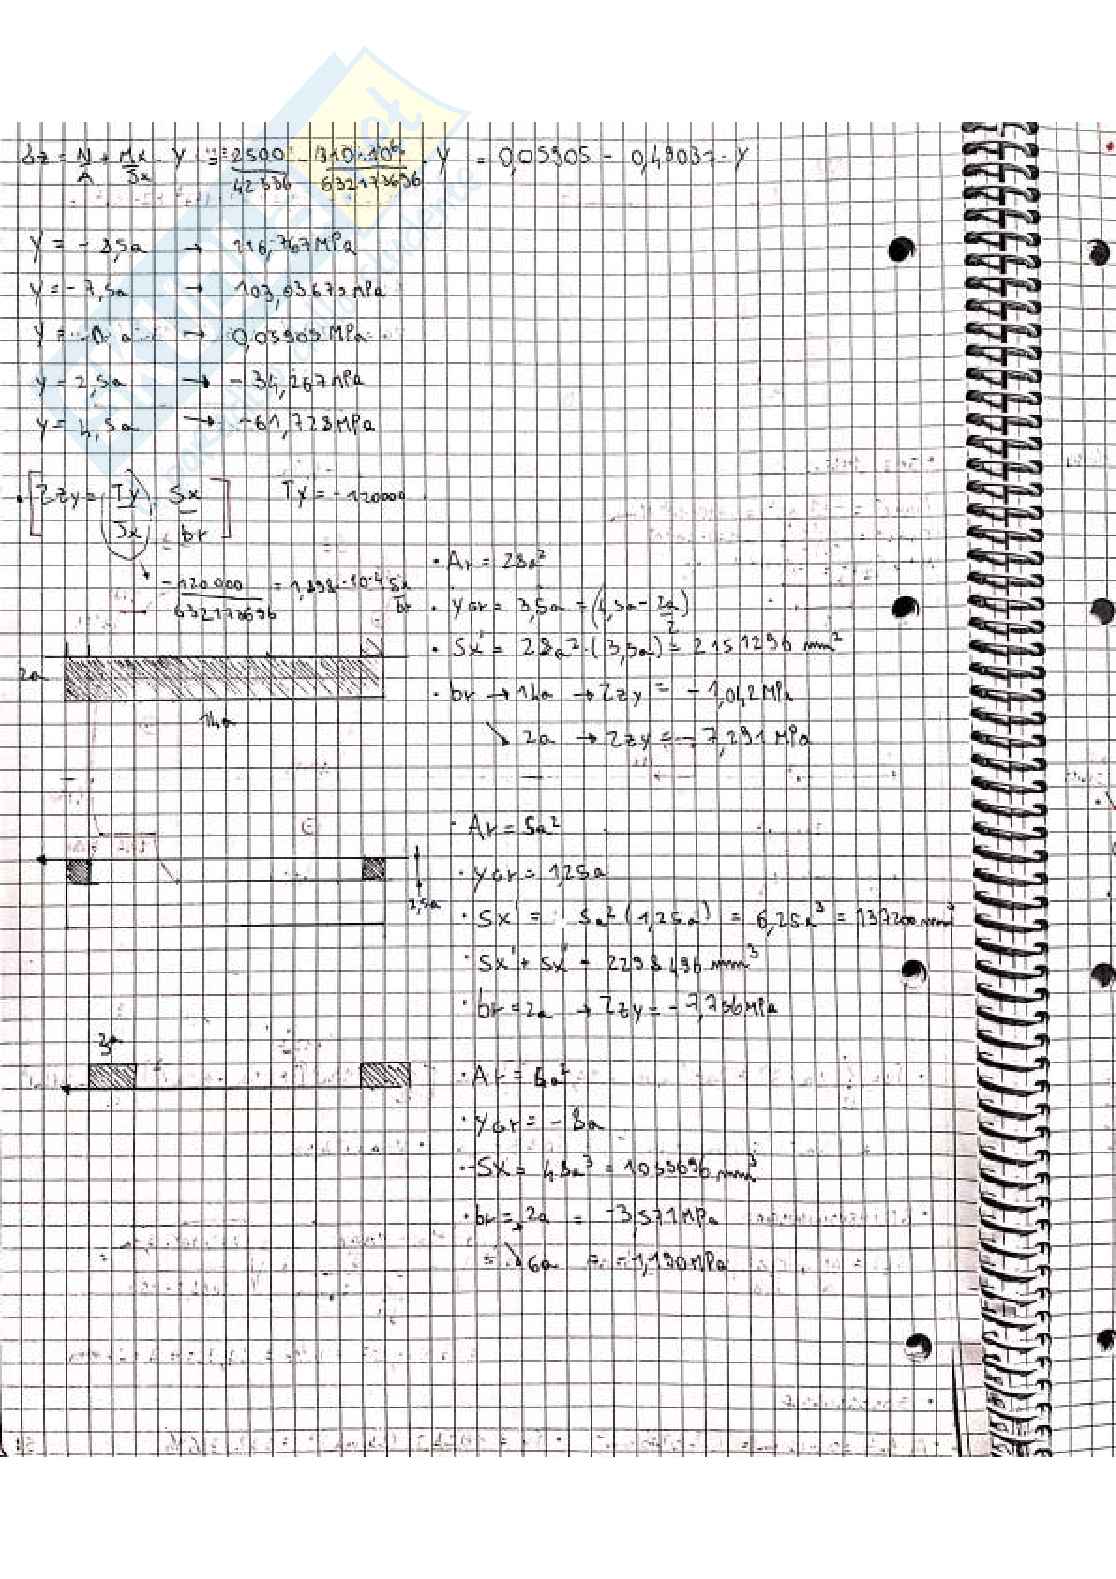 δz = N/A + Mx/Jx · Y = 2500/42336 - 310·10⁶/632173696 · Y = 0,05905 - 0,49037·Y
Y = - 8,5a → 116,767 MPa
Y = - 7,5a → 103,03679 MPa
→ 0,05905 MPa
y = 2,5a → - 34,267 MPa
y = 4,5a → -61,728 MPa
[ Zzy = Ty/Jx · Sx/br ] Ty = - 120000
-120000/632173696 = 1,898·10-4 Sx/br
· Ar = 28a²
· yGr = 3,5a = (4,5a - 2a/2)
2a
· Sx' = 28a²·(3,5a) = 2151296 mm²
· br → 14a → Zzy = - 1,042 MPa
14a
↘ 2a → Zzy = - 7,291 MPa
· Ar = 5a²
· yGr = 1,25a
2,5a
· Sx' = 5a² (1,25a) = 6,25a³ = 137200 mm³
· Sx' + Sx' = 2298496 mm³
· br = 2a → Zzy = - 7,756 MPa
3a
· Ar = 6a²
· yGr = - 8a
· Sx = 48a³ = 1053696 mm³
· br = 2a = -3,571 MPa
= ↘ 6a = - 1,190 MPa